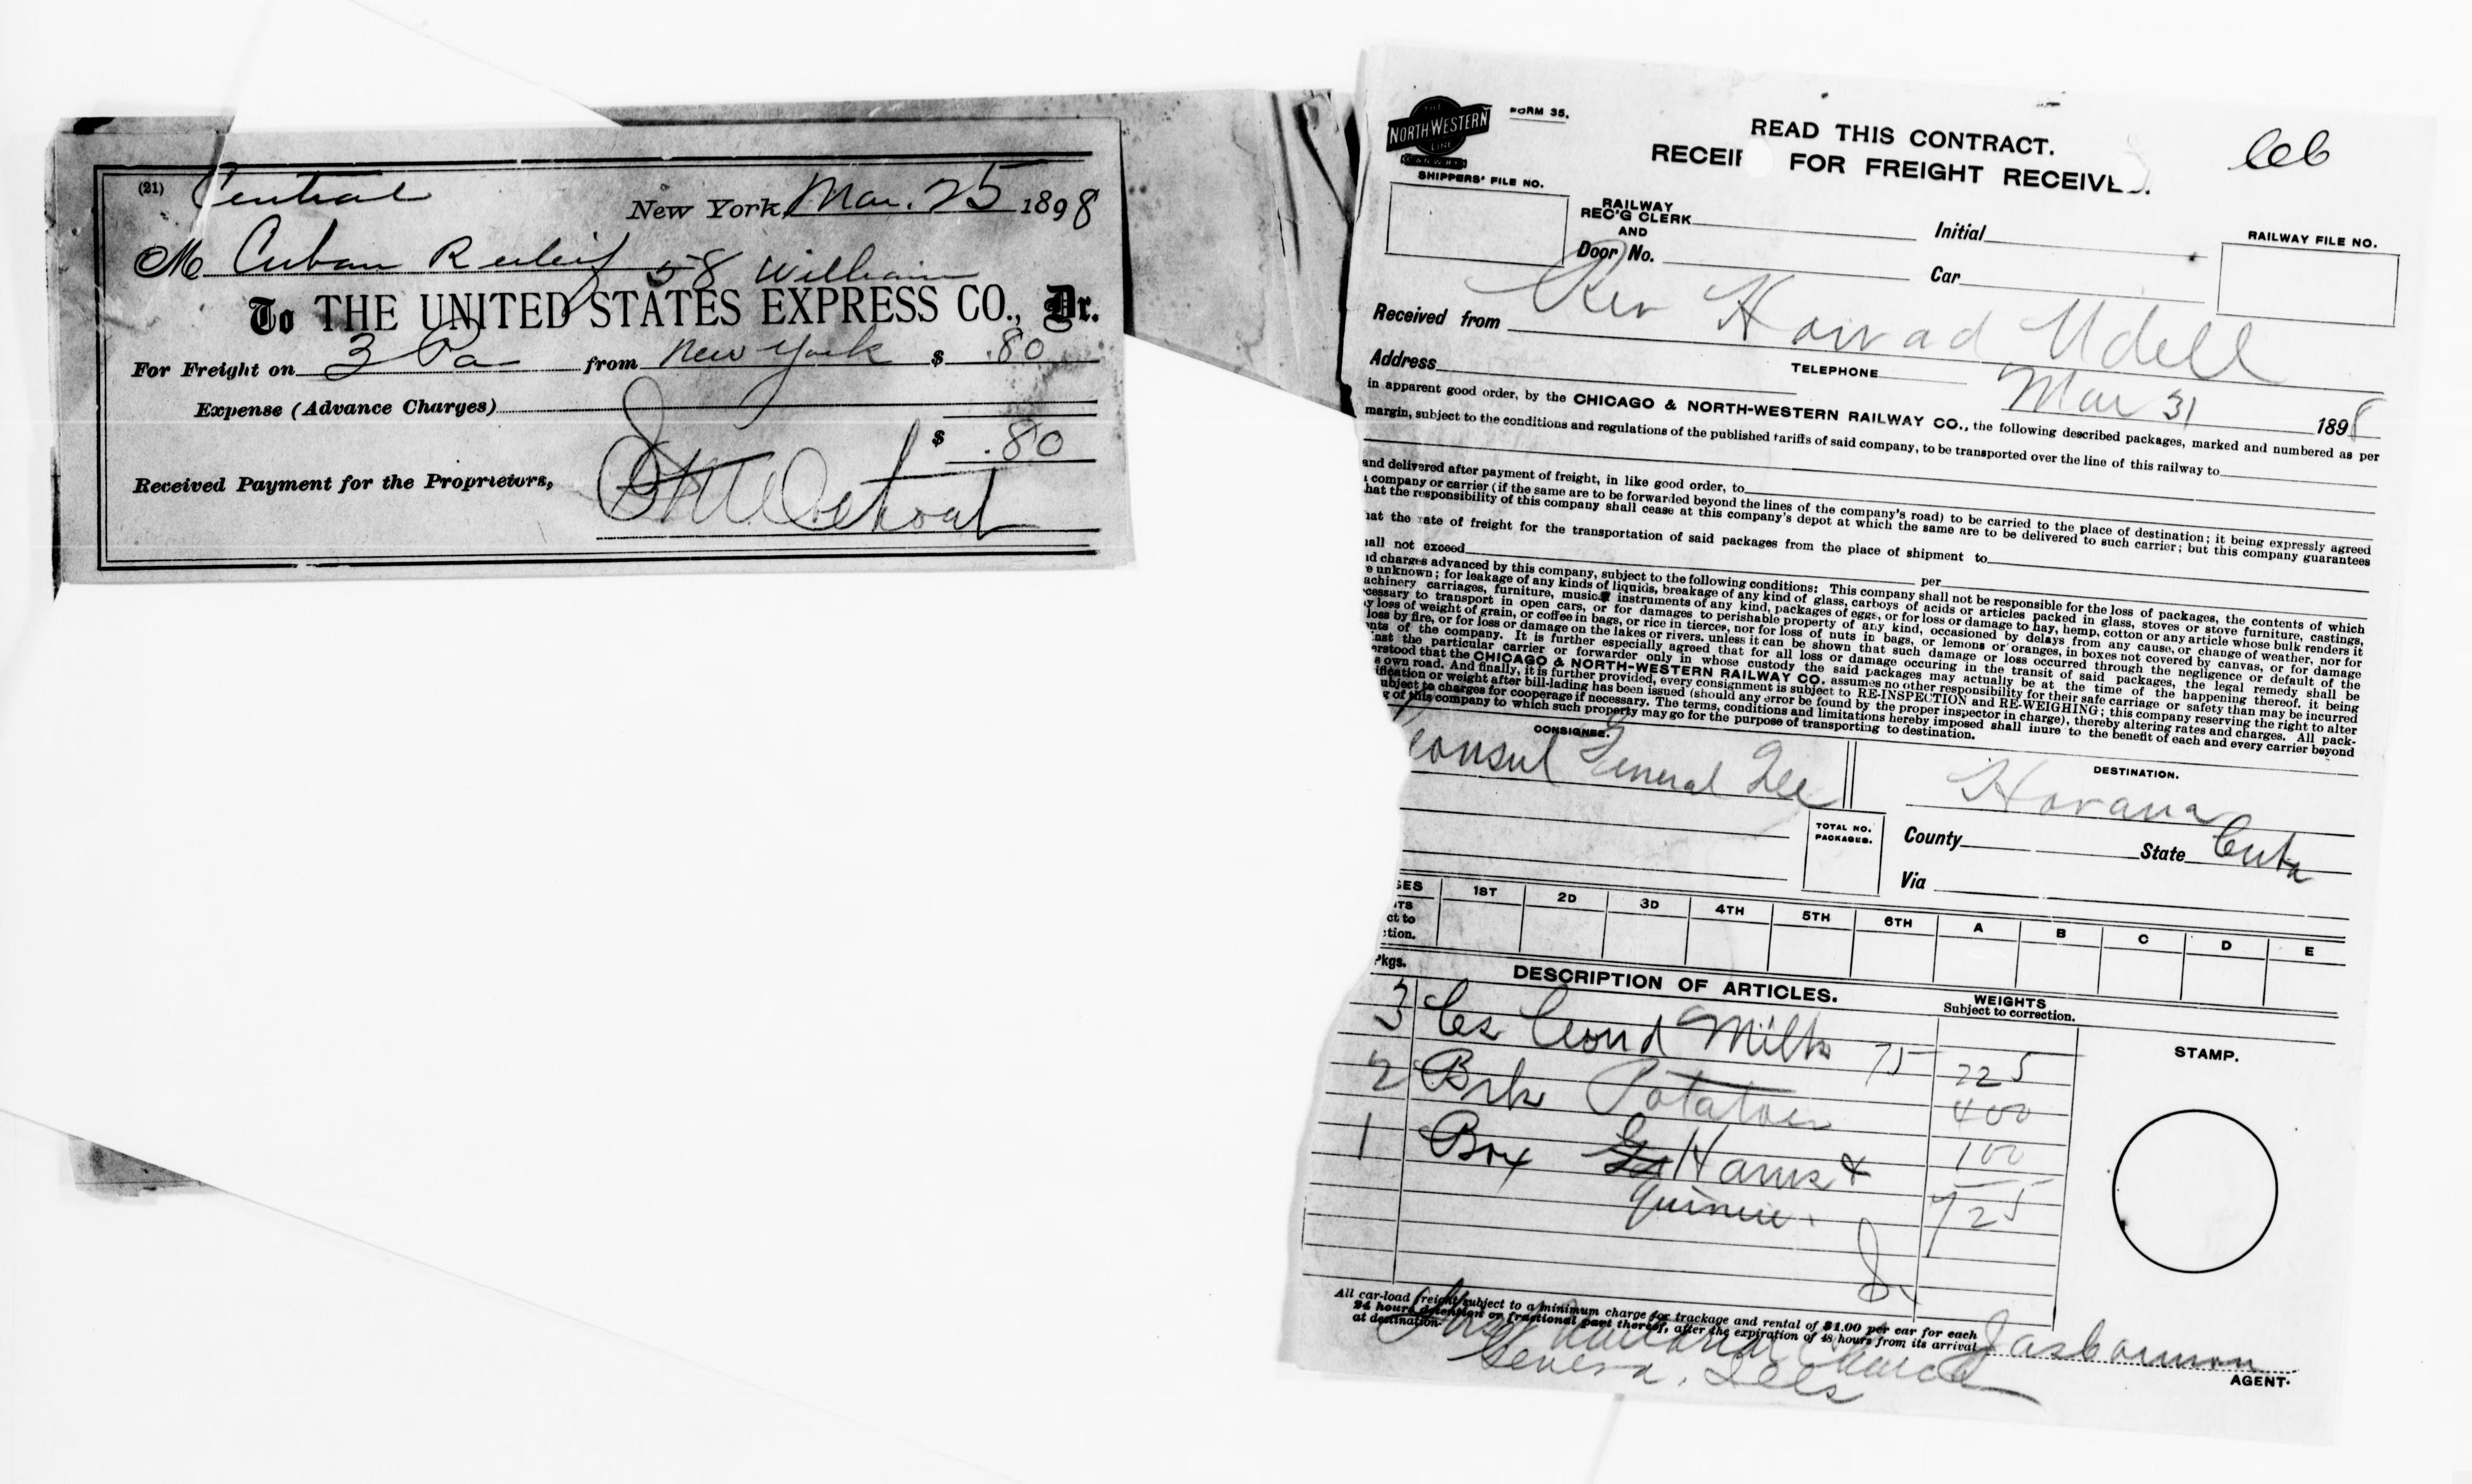 (21) Central
New York, Mar. 25 1898
M Cuban Relief 58 William
To THE UNITED STATES EXPRESS CO., Dr.
For Freight on 3 Pa from New York $ .80
Expense (Advance Charges)
$ .80
Received Payment for the Proprietors,
THE
NORTH-WESTERN
LINE
FORM 35.
READ THIS CONTRACT.
RECEIP FOR FREIGHT RECEIVE
SHIPPERS' FILE NO.
RAILWAY
REC'G CLERK
AND
Door No.
Initial
Car
RAILWAY FILE NO.
Received from Rev Howard Udell
Address TELEPHONE Mar 31 1898
in apparent good order, by the CHICAGO & NORTH-WESTERN RAILWAY CO., the following described packages, marked and numbered as per
margin, subject to the conditions and regulations of the published tariffs of said company, to be transported over the line of this railway to
and delivered after payment of freight, in like good order, to
company or carrier (if the same are to be forwarded beyond the lines of the company's road) to be carried to the place of destination; it being expressly agreed
hat the responsibility of this company shall cease at this company's depot at which the same are to be delivered to such carrier; but this company guarantees
hat the rate of freight for the transportation of said packages from the place of shipment to
hall not exceed per
d charges advanced by this company, subject to the following conditions: This company shall not be responsible for the loss of packages, the contents of which
e unknown; for leakage of any kinds of liquids, breakage of any kind of glass, carboys of acids or articles packed in glass, stoves or stove furniture, castings,
achinery carriages, furniture, musical instruments of any kind, packages of eggs, or for loss or damage to hay, hemp, cotton or any article whose bulk renders it
cessary to transport in open cars, or for damages to perishable property of any kind, occasioned by delays from any cause, or change of weather, nor for
y loss of weight of grain, or coffee in bags, or rice in tierces, nor for loss of nuts in bags, or lemons or oranges, in boxes not covered by canvas, or for damage
loss by fire, or for loss or damage on the lakes or rivers. unless it can be shown that such damage or loss occurred through the negligence or default of the
nts of the company. It is further especially agreed that for all loss or damage occuring in the transit of said packages, the legal remedy shall be
inst the particular carrier or forwarder only in whose custody the said packages may actually be at the time of the happening thereof. it being
erstood that the CHICAGO & NORTH-WESTERN RAILWAY CO. assumes no other responsibility for their safe carriage or safety than may be incurred
s own road. And finally, it is further provided, every consignment is subject to RE-INSPECTION and RE-WEIGHING; this company reserving the right to alter
ification or weight after bill-lading has been issued (should any error be found by the proper inspector in charge), thereby altering rates and charges. All pack-
ubject to charges for cooperage if necessary. The terms, conditions and limitations hereby imposed shall inure to the benefit of each and every carrier beyond
g of this company to which such property may go for the purpose of transporting to destination.
CONSIGNEE.
Consul General Lee
DESTINATION.
Havana
TOTAL NO.
PACKAGES.
County State Cuba
Via
SES 1ST 2D 3D 4TH 5TH 6TH A B C D E
TS
ct to
tion.
Pkgs. DESCRIPTION OF ARTICLES. WEIGHTS
Subject to correction.
3 Cs Cond Milk 75 225
2 Brls Potatoes 400
1 Box Hams & 100
Quinine 725
STAMP.
All car-load freight subject to a minimum charge for trackage and rental of $1.00 per car for each
24 hours detention or fractional part thereof, after the expiration of 48 hours from its arrival
at destination.
Church
Geneva, Ills
AGENT.